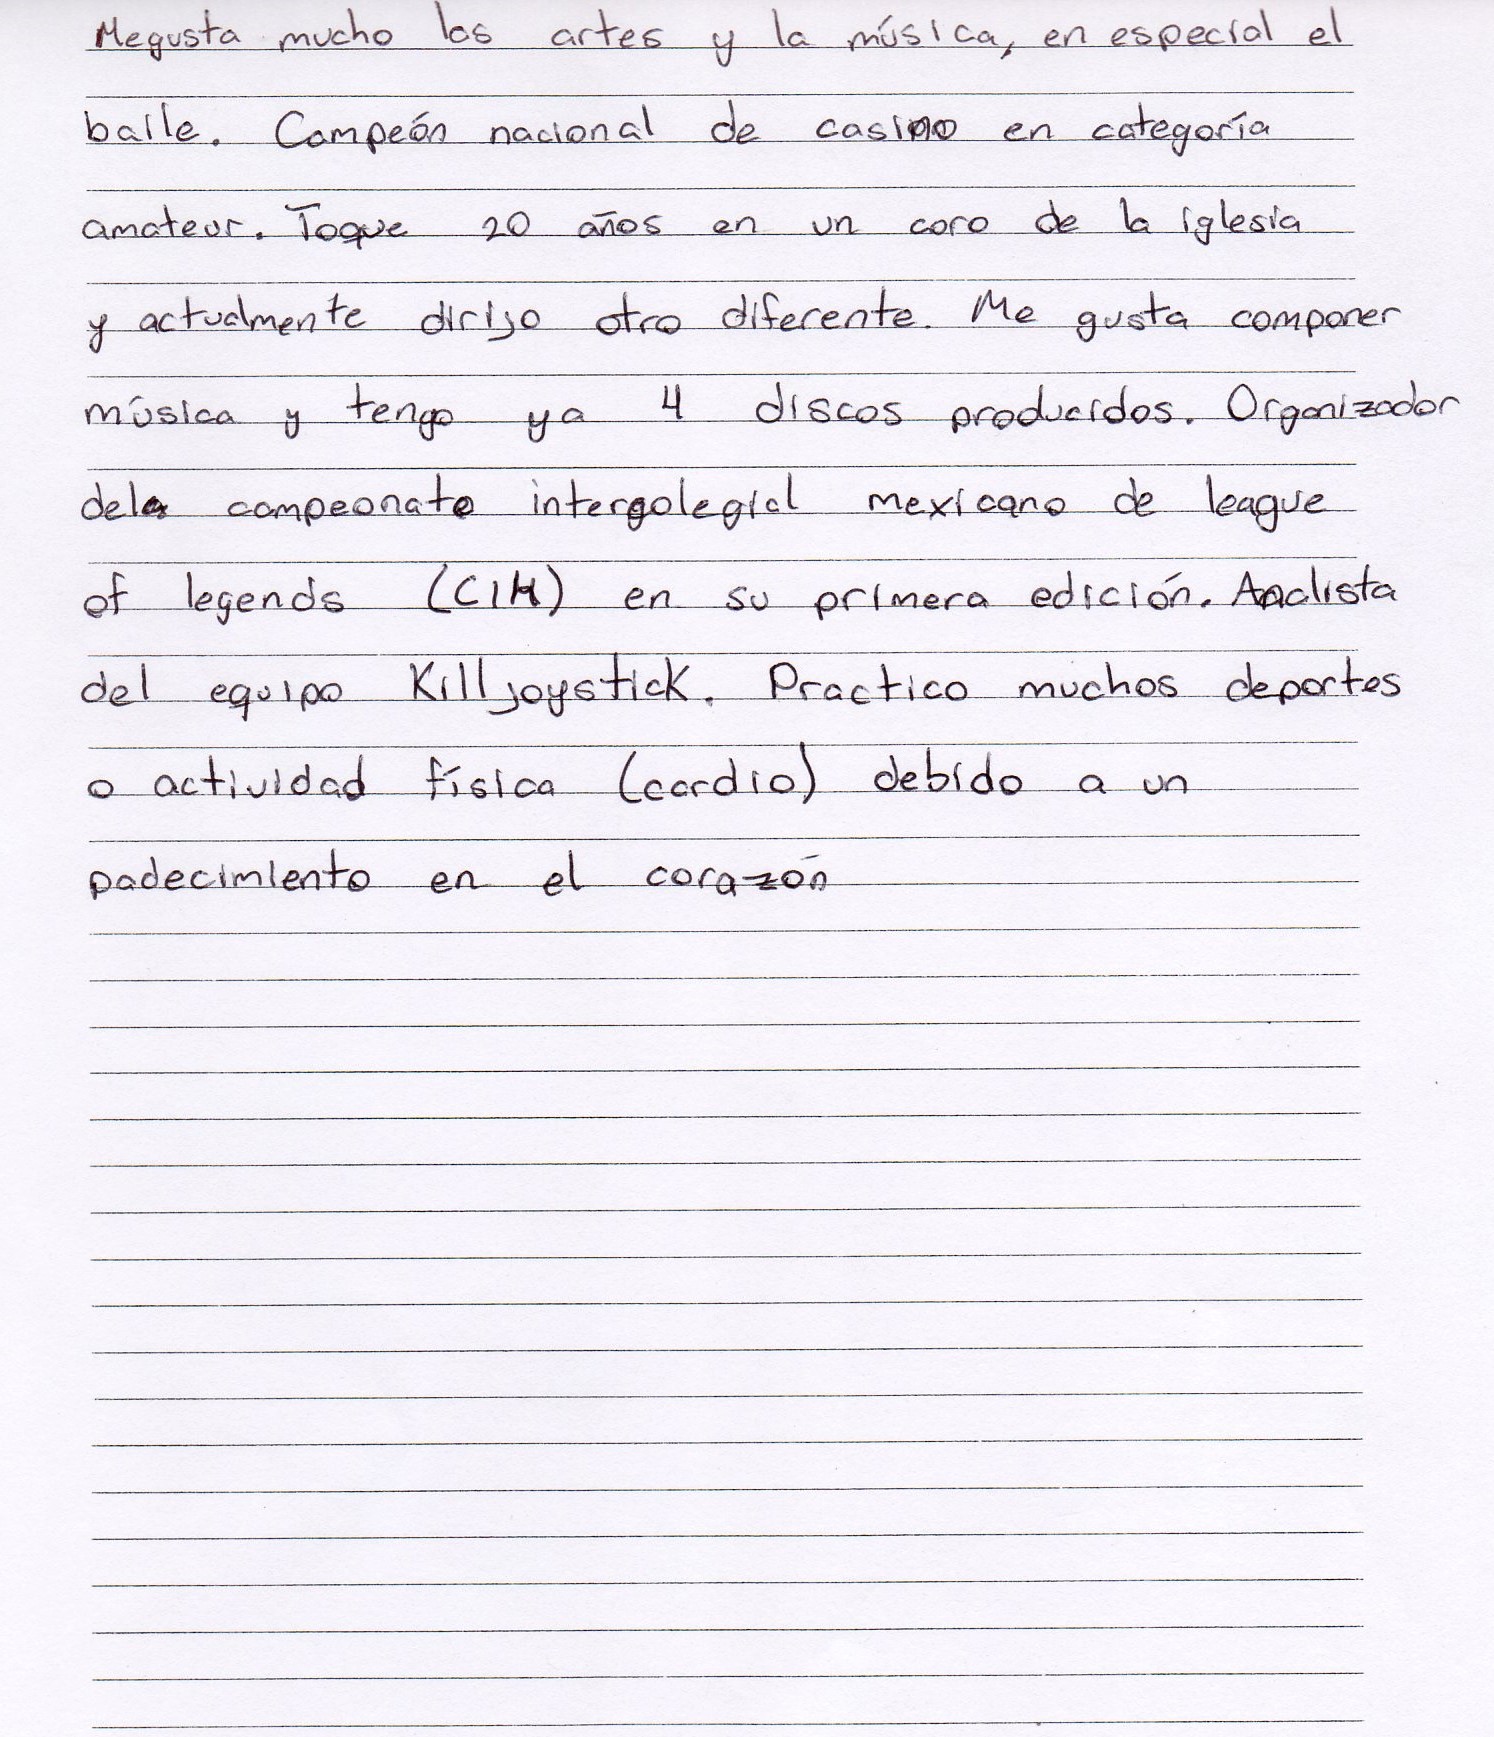 Me gusta mucho las artes y la música, en especial el
baile. Campeón nacional de casino en categoría
amateur. Toque 20 años en un coro de la iglesia
y actualmente dirijo otro diferente. Me gusta componer
música y tengo ya 4 discos producidos. Organizador
del campeonato intercolegial mexicano de league
of legends (CIM) en su primera edición. Analista
del equipo Killjoystick. Practico muchos deportes
o actividad física (cardio) debido a un
padecimiento en el corazón